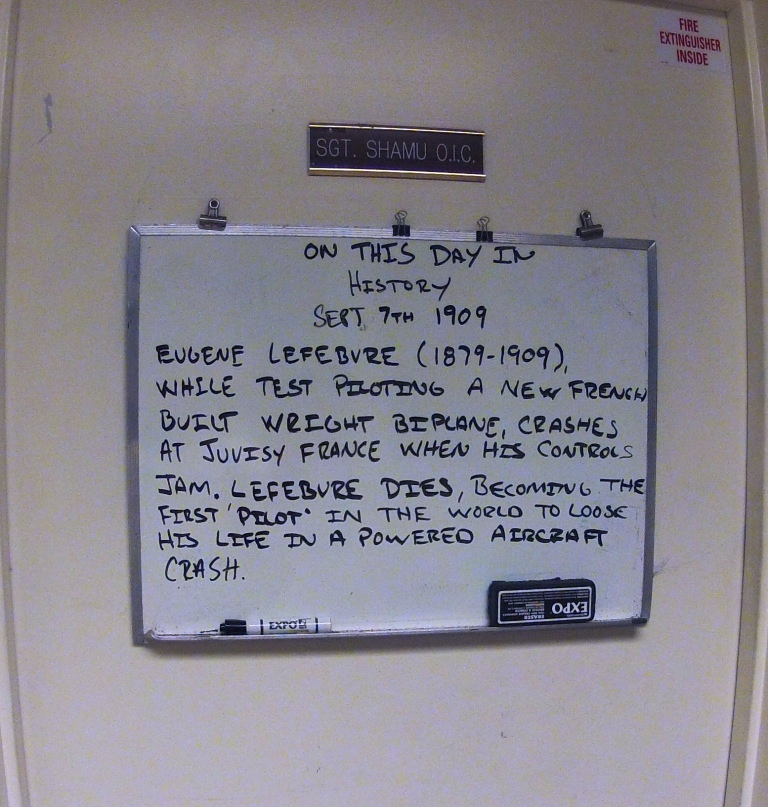 FIRE
EXTINGUISHER
INSIDE
SGT. SHAMU O.I.C.
ON THIS DAY IN
HISTORY
SEPT 7TH 1909
EUGENE LEFEBVRE (1879-1909),
WHILE TEST PILOTING A NEW FRENCH
BUILT WRIGHT BIPLANE, CRASHES
AT JUVISY FRANCE WHEN HIS CONTROLS
JAM. LEFEBVRE DIES, BECOMING THE
FIRST 'PILOT' IN THE WORLD TO LOOSE
HIS LIFE IN A POWERED AIRCRAFT
CRASH.
EXPO
EXPO
ERASER